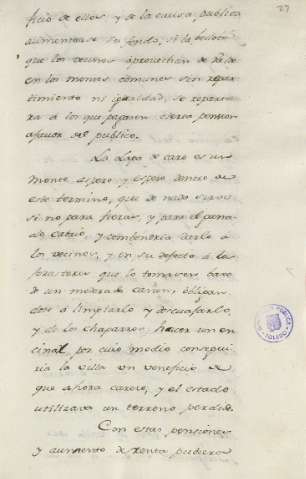 27
ficio de ellos y de la causa publica
aumentase su fondo, si la bellota
que los vecinos aprovechan de valde
en los montes comunes sin repar
timiento ni igualdad, se repartie
ra á los que pagasen cierta pension
afavor del publico.
La Dehesa de caro es un
monte aspero y espeso dentro de
este termino, que de nada sirve
si no para
y para el gana
do cabrio, y combendria darlo á
los vecinos, y en su defecto á los
forasteros que lo tomasen bajo
de un moderado canon, obligan
dose á limpiarlo y descuajarlo,
y de los chaparros, hacer un en
cinal, por cuio medio consegui
ria la villa un veneficio de
que ahora carece, y el estado
utilizava un terreno perdido.
Con estas pensiones
y aumento de renta pudiera
TOLEDO